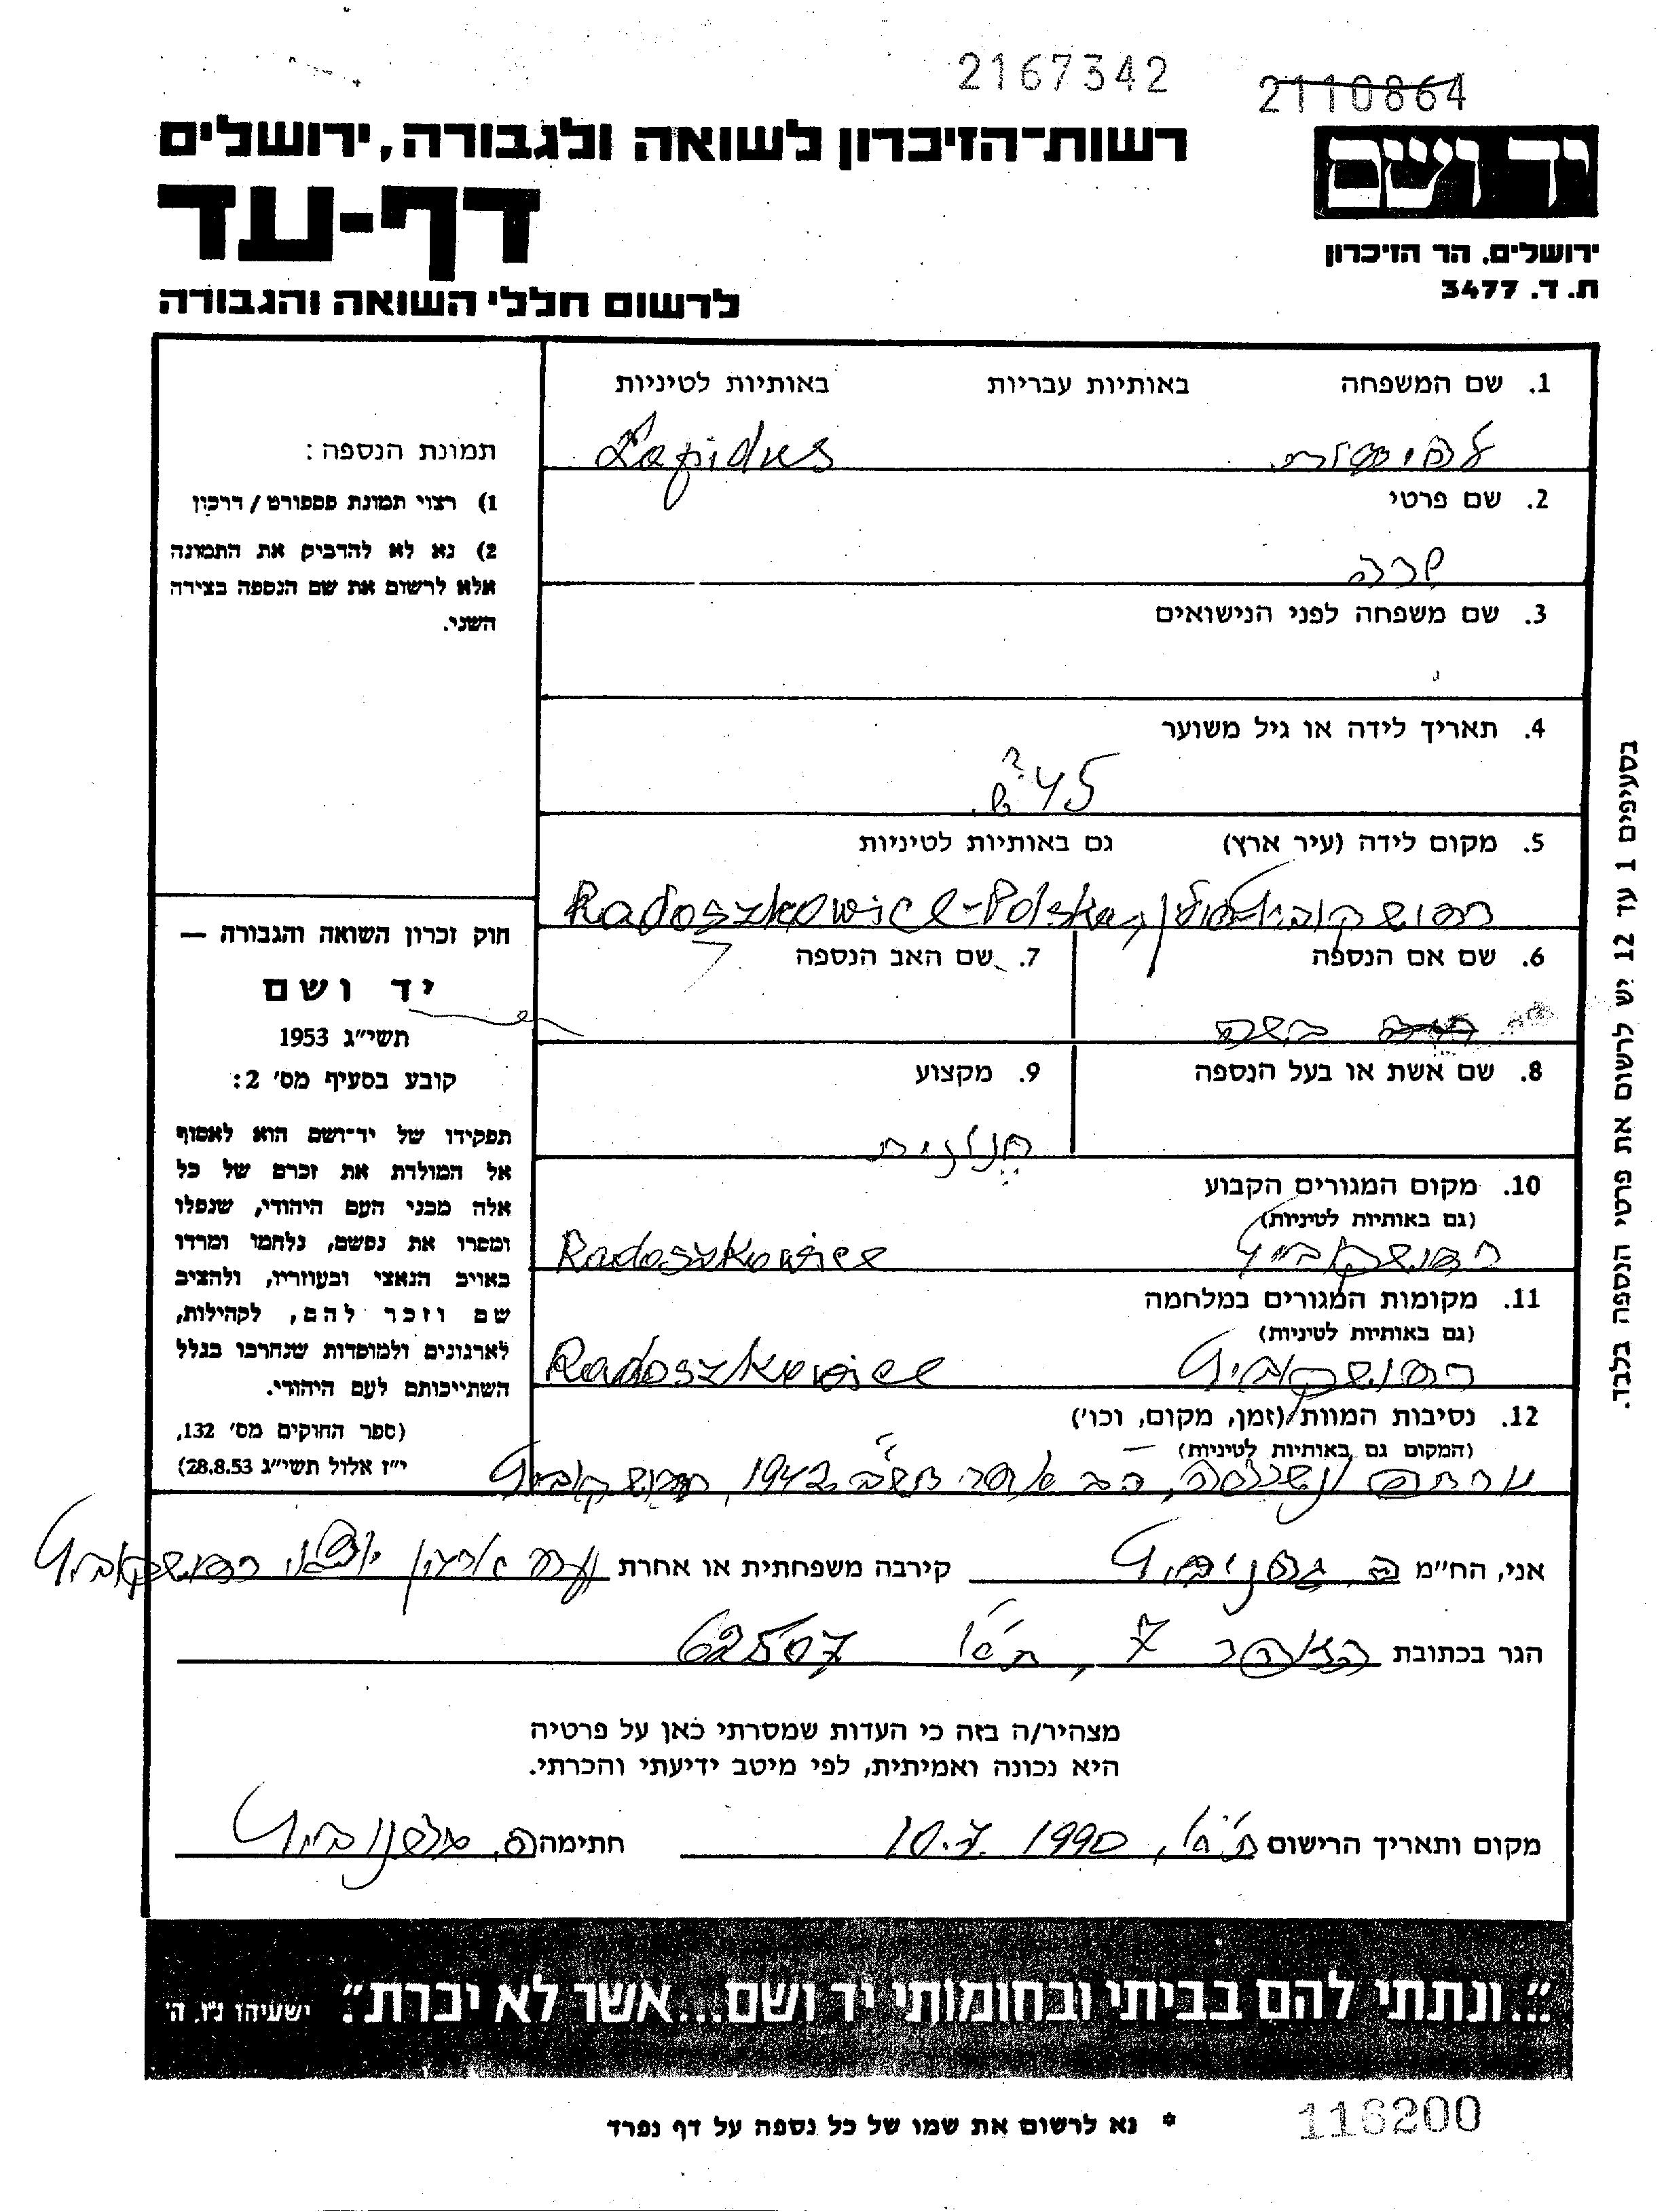 2167342
2110864
יד ושם
ירושלים. הר הזיכרון
ת. ד. 3477
רשות־הזיכרון לשואה ולגבורה, ירושלים
דף-עד
לרשום חללי השואה והגבורה
1. שם המשפחה באותיות עבריות באותיות לטיניות
לפידות Lapidus
2. שם פרטי
שרה
3. שם משפחה לפני הנישואים
4. תאריך לידה או גיל משוער
45 ש.
5. מקום לידה (עיר ארץ) גם באותיות לטיניות
Radoszkowice-Polska
6. שם אם הנספה 7. שם האב הנספה
8. שם אשת או בעל הנספה 9. מקצוע
חנונית
10. מקום המגורים הקבוע
(גם באותיות לטיניות)
רדושקוביץ Radoszkowice
11. מקומות המגורים במלחמה
(גם באותיות לטיניות)
רדושקוביץ Radoszkowice
12. נסיבות המוות (זמן, מקום, וכו')
(המקום גם באותיות לטיניות)
1942, רדושקוביץ
תמונת הנספה:
1) רצוי תמונת פספורט/דרכון
2) נא לא להדביק את התמונה
אלא לרשום את שם הנספה בצידה
השני.
חוק זכרון השואה והגבורה —
יד ושם
תשי״ג 1953
קובע בסעיף מס' 2:
תפקידו של יד־ושם הוא לאסוף
אל המולדת את זכרם של כל
אלה מבני העם היהודי, שנפלו
ומסרו את נפשם, נלחמו ומרדו
באויב הנאצי ובעוזריו, ולהציב
שם וזכר להם, לקהילות,
לארגונים ולמוסדות שנחרבו בגלל
השתייכותם לעם היהודי.
(ספר החוקים מס' 132,
י״ז אלול תשי״ג 28.8.53)
בסעיפים 1 עד 12 יש לרשום את פרטי הנספה בלבד.
אני, הח״מ קירבה משפחתית או אחרת רדושקוביץ
הגר בכתובת 7, ת״א 62507
מצהיר/ה בזה כי העדות שמסרתי כאן על פרטיה
היא נכונה ואמיתית, לפי מיטב ידיעתי והכרתי.
מקום ותאריך הרישום ת״א, 10.7.1990 חתימה
"...ונתתי להם בביתי ובחומותי יד ושם...אשר לא יכרת". ישעיהו נ״ו, ה'
* נא לרשום את שמו של כל נספה על דף נפרד
116200